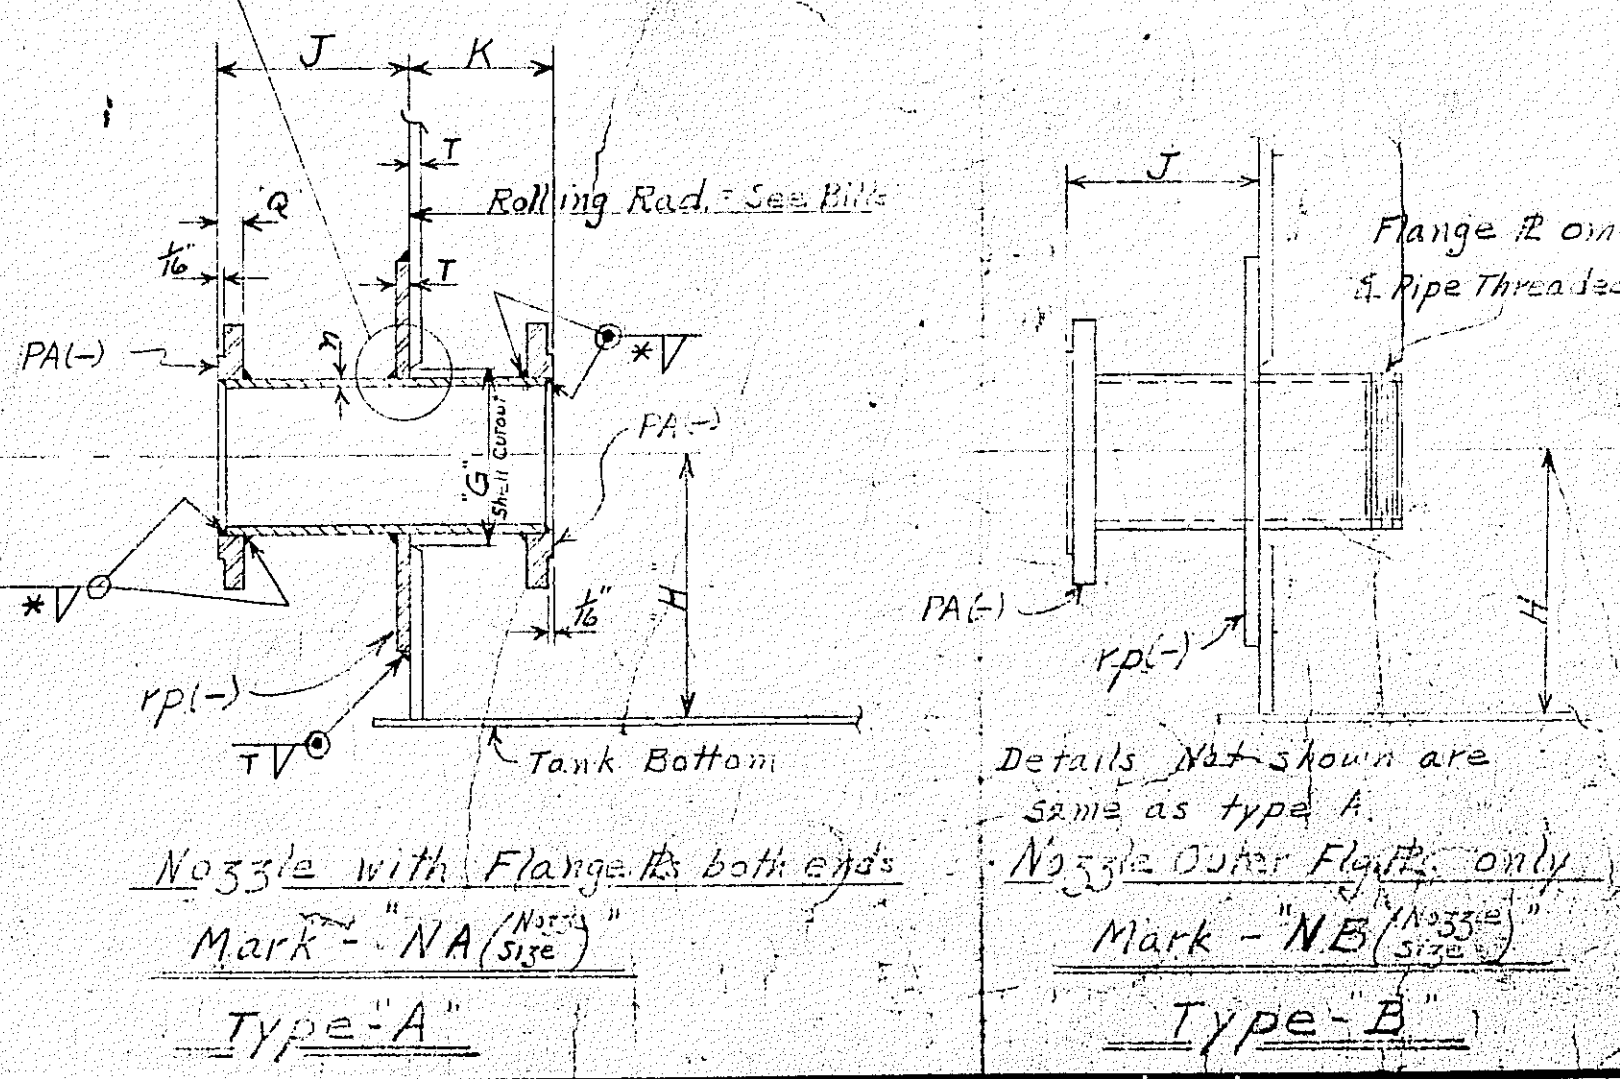 J
K
T
Q
Rolling Rad. - See Bills
1/16"
T
n
PA(-)
*
"G"
Shell Cutout
PA(-)
H
*
1/16"
rp(-)
T
Tank Bottom
Nozzle with Flange ℔s both ends
Mark - "NA (Nozzle Size)"
Type - "A"
J
Flange ℔ om
& Pipe Threaded
PA(-)
rp(-)
H
Details Not shown are
same as type A.
Nozzle Outer Flg. only
Mark - "NB (Nozzle Size)"
Type - "B"